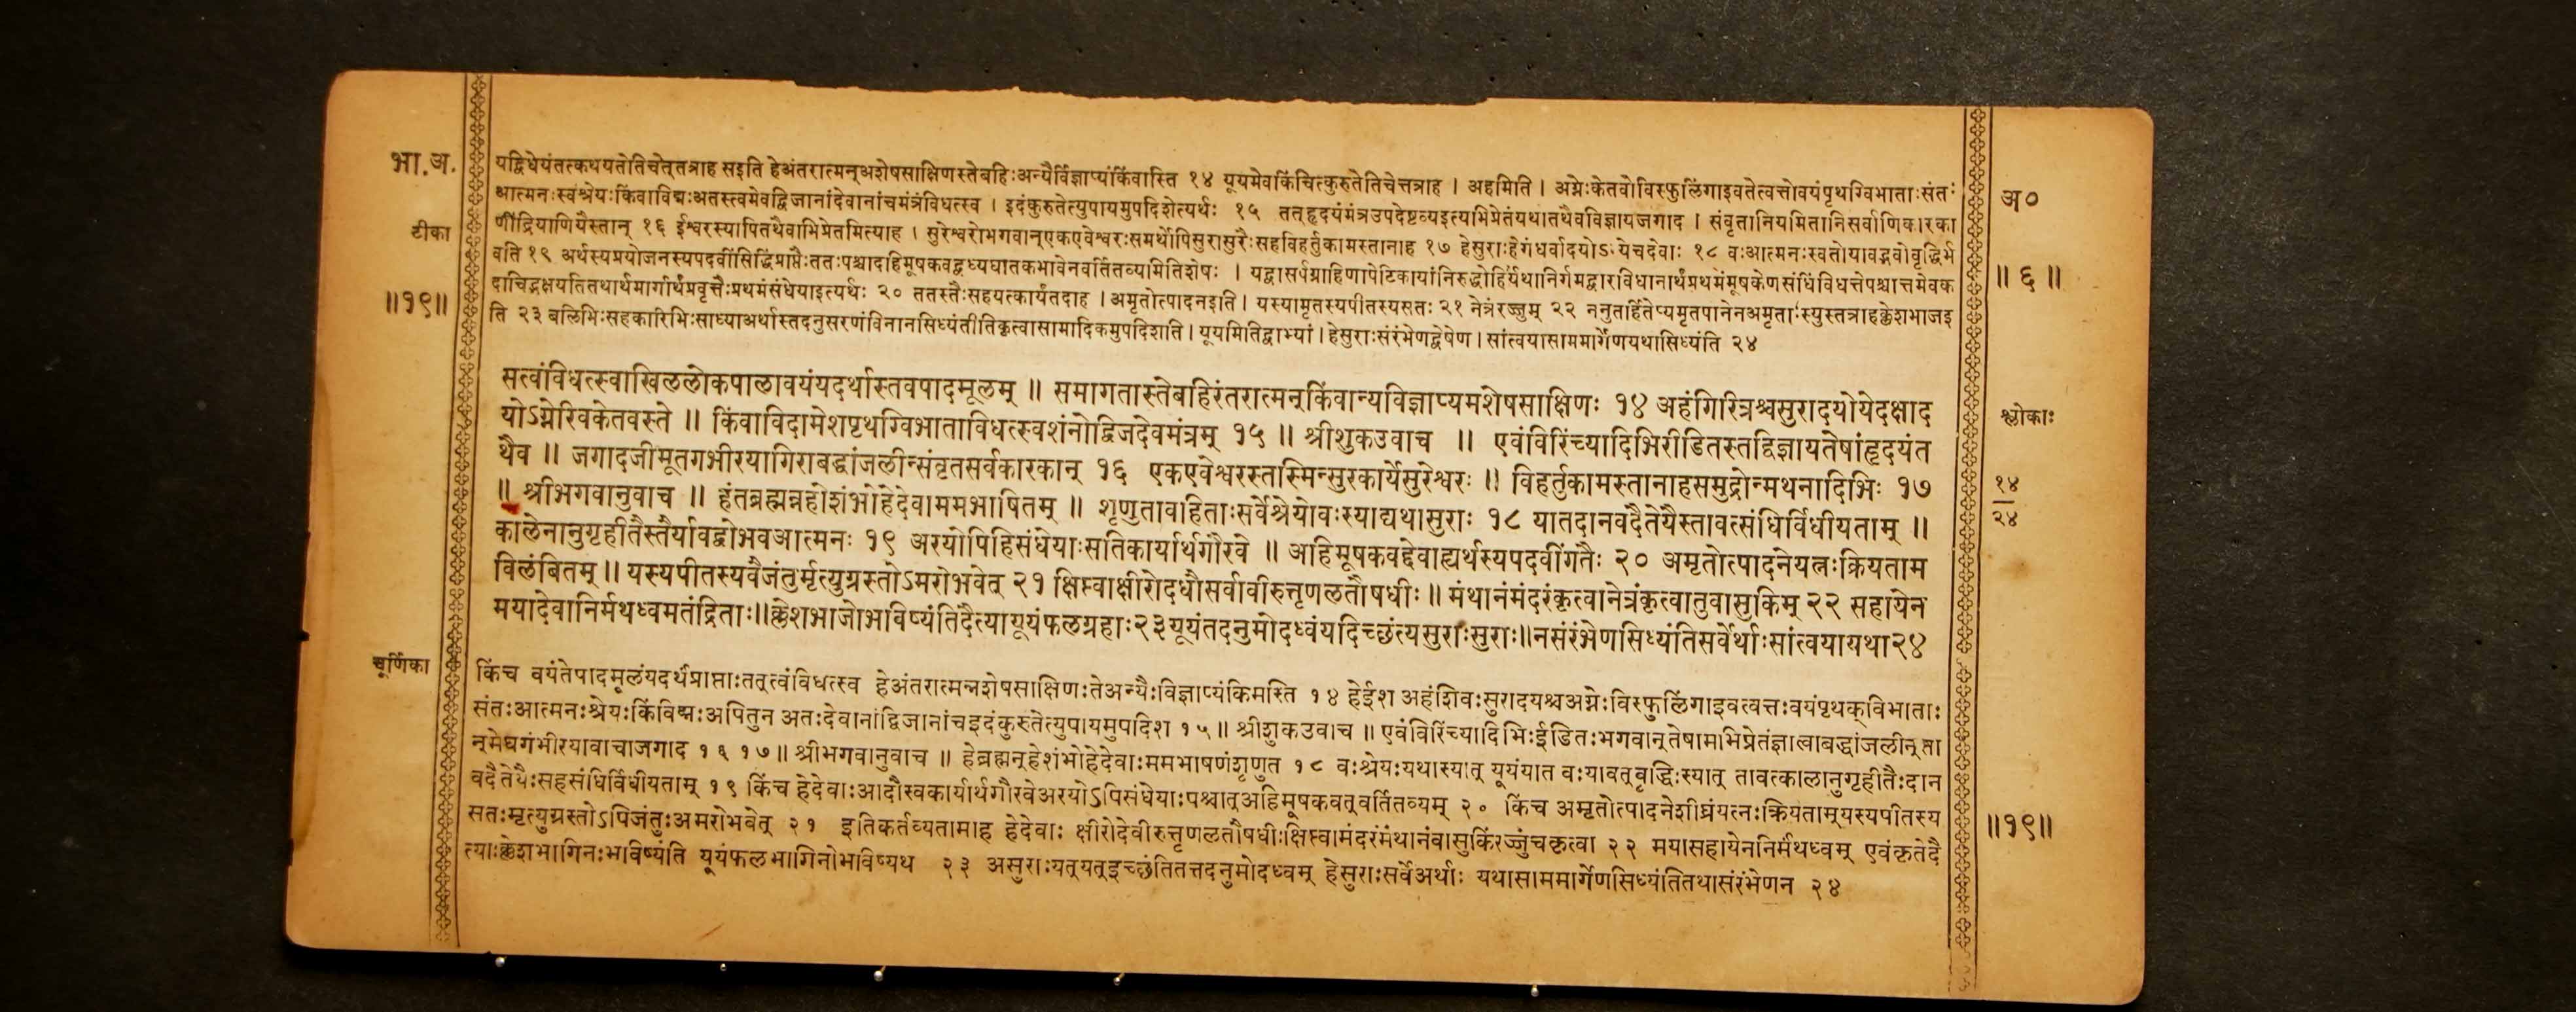 भा.अ.
टीका
॥१९॥
यद्विधेयंतत्कथयतोतिचेत्तत्राह सइति हेअंतरात्मन्अशेषसाक्षिणस्तेबहिःअन्यैर्विज्ञाप्यंकिंवास्ति १४ यूयमेवकिंचित्कुरुतेतिचेत्तत्राह । अहमिति । अग्नेःकेतवोविस्फुलिंगाइवतेत्वत्तोवयंपृथग्विभाताःसंतः
आत्मनःस्वंश्रेयःकिंवाविद्मःअतस्त्वमेवद्विजानांदेवानांचमंत्रंविधत्स्व । इदंकुरुतेत्युपायमुपदिशेत्यर्थः १५ तत्हृदयंमंत्रउपदेष्टव्यइत्यभिप्रेतंयथातथैवविज्ञायजगाद । संवृतानियमितानिसर्वाणिकारका
णींद्रियाणियैस्तान् १६ ईश्वरस्यापितथैवाभिप्रेतमित्याह । सुरेश्वरोभगवान्एकएवेश्वरःसमर्थोपिसुरासुरैःसहविहर्तुकामस्तानाह १७ हेसुराःहेगंधर्वादयोऽयेचदेवाः १८ वःआत्मनःस्वतोयावद्भवोवृद्धिर्भ
वति १९ अर्थस्यप्रयोजनस्यपदवींसिद्धिंप्राप्तैःततःपश्चादहिमूषकवद्वध्यघातकभावेनवर्तितव्यमितिशेषः । यद्वासर्पग्राहिणापेटिकायांनिरुद्धोहिर्यथानिर्गमद्वारविधानार्थंप्रथमंमूषकेणसंधिंविधत्तेपश्चात्तमेवक
दाचिद्भक्षयतितथार्थमार्गार्थंप्रवृत्तैःप्रथमंसंधेयाइत्यर्थः २० ततस्तैःसहयत्कार्यंतदाह । अमृतोत्पादनइति । यस्यामृतस्यपीतस्यसतः २१ नेत्रंरज्जुम् २२ ननुतर्हितेप्यमृतपानेनअमृताःस्युस्तत्राहक्लेशभाजइ
ति २३ बलिभिःसहकारिभिःसाध्याअर्थास्तदनुसरणंविनानसिध्यंतीतिकृत्वासामादिकमुपदिशति । यूयमितिद्वाभ्यां । हेसुराःसंरंभेणद्वेषेण । सांत्वयासाममार्गेणयथासिध्यंति २४
सत्वंविधत्स्वाखिललोकपालावयंयदर्थास्तवपादमूलम् ॥ समागतास्तेबहिरंतरात्मन्किंवान्यविज्ञाप्यमशेषसाक्षिणः १४ अहंगिरित्रश्चसुरादयोयेदक्षाद
योऽग्नेरिवकेतवस्ते ॥ किंवाविदामेशपृथग्विभाताविधत्स्वशंनोद्विजदेवमंत्रम् १५ ॥ श्रीशुकउवाच ॥ एवंविरिंच्यादिभिरीडितस्तद्विज्ञायतेषांहृदयंत
थैव ॥ जगादजीमूतगभीरयागिराबद्धांजलीन्संवृतसर्वकारकान् १६ एकएवेश्वरस्तस्मिन्सुरकार्येसुरेश्वरः ॥ विहर्तुकामस्तानाहसमुद्रोन्मथनादिभिः १७
॥ श्रीभगवानुवाच ॥ हंतब्रह्मन्नहोशंभोहेदेवाममभाषितम् ॥ शृणुतावहिताःसर्वेश्रेयोवःस्याद्यथासुराः १८ यातदानवदैतेयैस्तावत्संधिर्विधीयताम् ॥
कालेनानुगृहीतैस्तैर्यावद्वोभवआत्मनः १९ अरयोपिहिसंधेयाःसतिकार्यार्थगौरवे ॥ अहिमूषकवद्देवाह्यर्थस्यपदवींगतैः २० अमृतोत्पादनेयत्नःक्रियताम
विलंबितम् ॥ यस्यपीतस्यवैजंतुर्मृत्युग्रस्तोऽमरोभवेत् २१ क्षिप्त्वाक्षीरोदधौसर्वावीरुत्तृणलतौषधीः ॥ मंथानंमंदरंकृत्वानेत्रंकृत्वातुवासुकिम् २२ सहायेन
मयादेवानिर्मथध्वमतंद्रिताः॥क्लेशभाजोभविष्यंतिदैत्यायूयंफलग्रहाः२३यूयंतदनुमोदध्वंयदिच्छंत्यसुराःसुराः॥नसंरंभेणसिध्यंतिसर्वेर्थाःसांत्वयायथा२४
चूर्णिका
किंच वयंतेपादमूलंयदर्थंप्राप्ताःतत्त्वंविधत्स्व हेअंतरात्मन्नशेषसाक्षिणःतेअन्यैःविज्ञाप्यंकिमस्ति १४ हेईश अहंशिवःसुरादयश्चअग्नेःविस्फुलिंगाइवत्वत्तःवयंपृथक्विभाताः
संतःआत्मनःश्रेयःकिंविद्मःअपितुन अतःदेवानांद्विजानांचइदंकुरुतेत्युपायमुपादिश १५॥ श्रीशुकउवाच ॥ एवंविरिंच्यादिभिःईडितःभगवान्तेषामभिप्रेतंज्ञात्वाबद्धांजलीन्ता
न्मेघगंभीरयावाचाजगाद १६ १७॥ श्रीभगवानुवाच ॥ हेब्रह्मन्हेशंभोहेदेवाःममभाषणंशृणुत १८ वःश्रेयःयथास्यात् यूयंयात वःयावत्वृद्धिःस्यात् तावत्कालानुगृहीतैःदान
वदैतेयैःसहसंधिर्विधीयताम् १९ किंच हेदेवाःआदौस्वकार्यार्थगौरवेअरयोऽपिसंधेयाःपश्चात्अहिमूषकवत्वर्तितव्यम् २० किंच अमृतोत्पादनेशीघ्रंयत्नःक्रियताम्यस्यपीतस्य
सतःमृत्युग्रस्तोऽपिजंतुःअमरोभवेत् २१ इतिकर्तव्यतामाह हेदेवाः क्षीरोदेवीरुत्तृणलतौषधीःक्षिप्त्वामंदरंमंथानंवासुकिंरज्जुंचकृत्वा २२ मयासहायेननिर्मथध्वम् एवंकृतेदै
त्याःक्लेशभागिनःभविष्यंति यूयंफलभागिनोभविष्यथ २३ असुराःयत्यत्इच्छंतितत्तदनुमोदध्वम् हेसुराःसर्वेअर्थाः यथासाममार्गेणसिध्यंतितथासंरंभेणन २४
अ०
॥ ६ ॥
श्लोकाः
१४
२४
॥१९॥